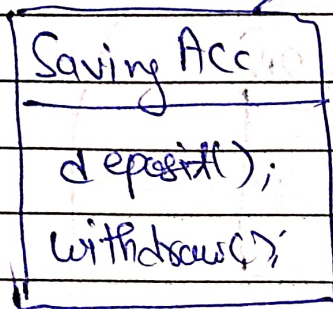 Saving Acc.
deposit();
withdraw();